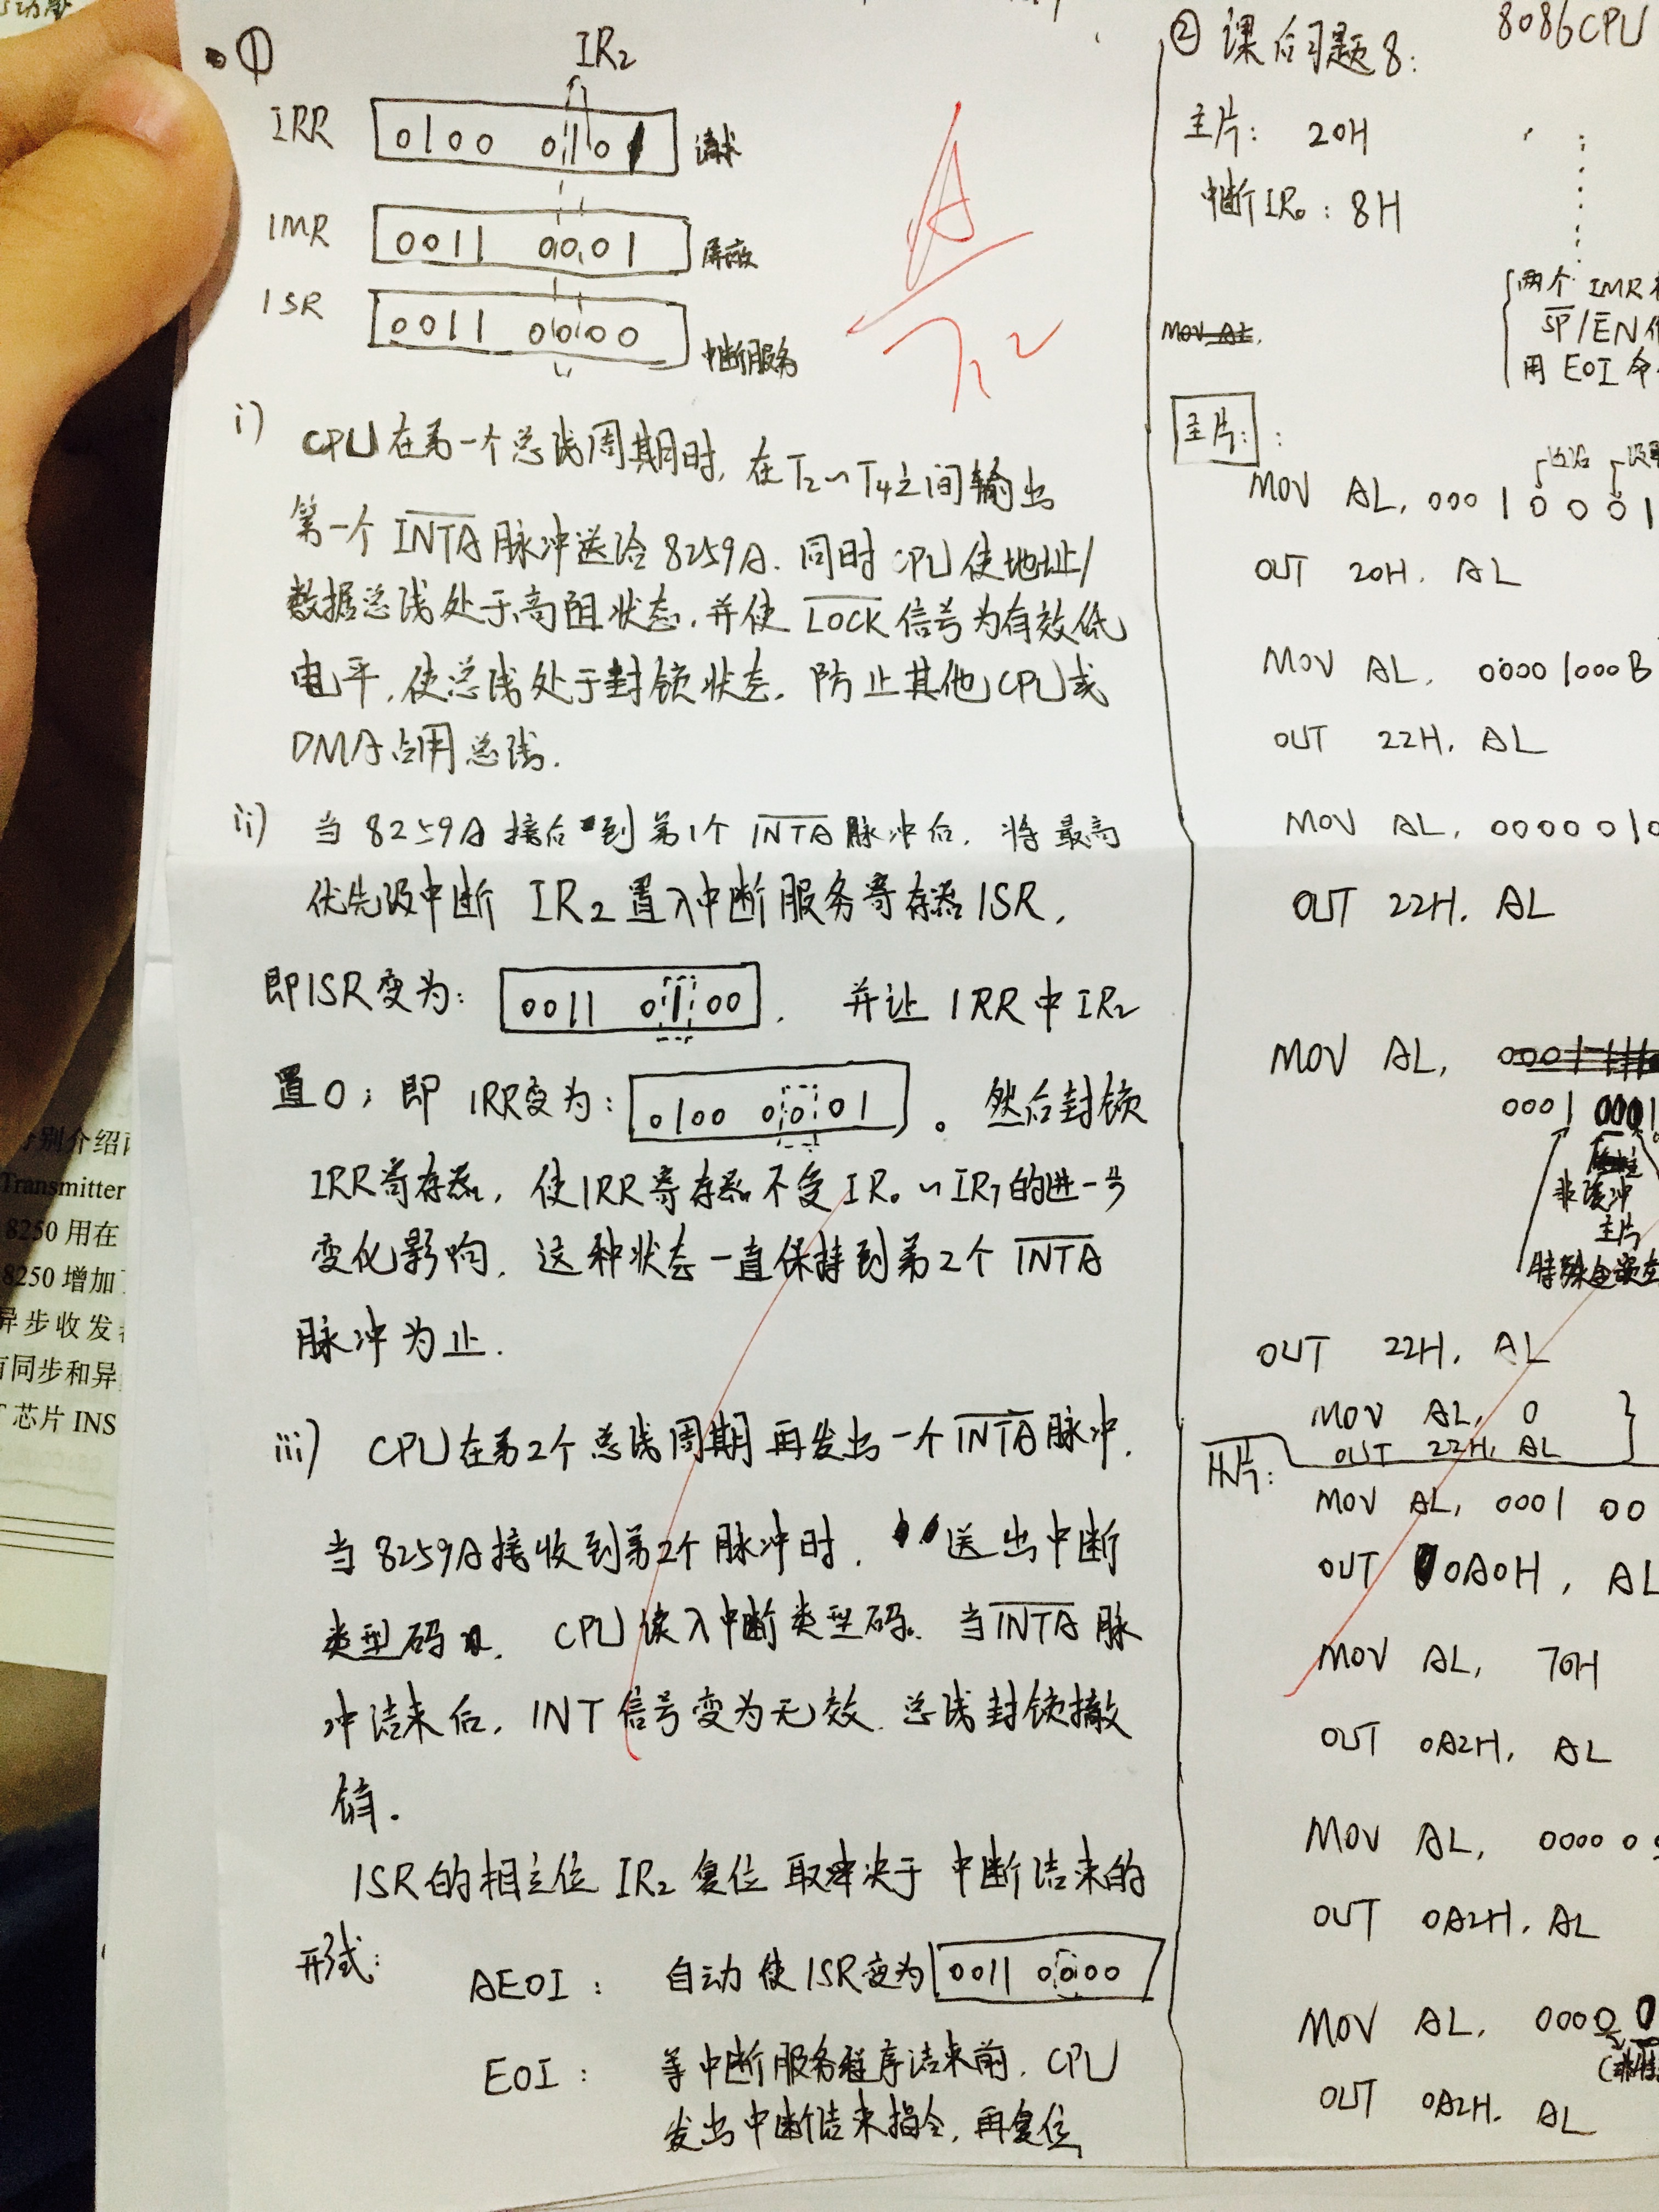 ①
IR₂
IRR 0100 0101 请求
IMR 0011 0001 屏蔽
ISR 0011 0000 中断服务
i) CPU在第一个总线周期时,在T₂~T₄之间输出
第一个INTA脉冲送给8259A.同时CPU使地址/
数据总线处于高阻状态,并使LOCK信号为有效低
电平,使总线处于封锁状态,防止其他CPU或
DMA占用总线.
ii) 当8259A接后到第1个INTA脉冲后,将最高
优先级中断IR₂置入中断服务寄存器ISR,
即ISR变为: 0011 0100 , 并让IRR中IR₂
置0;即IRR变为: 0100 0001 。然后封锁
IRR寄存器,使IRR寄存器不受IR₀~IR₇的进一步
变化影响,这种状态一直保持到第2个INTA
脉冲为止.
iii) CPU在第2个总线周期再发出一个INTA脉冲.
当8259A接收到第2个脉冲时, 送出中断
类型码n. CPU读入中断类型码.当INTA脉
冲结束后,INT信号变为无效.总线封锁撤
销.
ISR的相应位IR₂复位取决于中断结束的
形式:
AEOI: 自动使ISR变为 0011 0000
EOI: 等中断服务程序结束前,CPU
发出中断结束指令,再复位
② 课后习题8: 8086CPU
主片: 20H
中断IR₀: 8H
两个IMR
SP/EN
用EOI命
MOV AL,
主片:
MOV AL, 00010001
OUT 20H, AL
MOV AL, 00001000B
OUT 22H, AL
MOV AL, 0000010
OUT 22H, AL
MOV AL,
0001 0001
非缓冲
主片
特殊全嵌套
OUT 22H, AL
MOV AL, 0
OUT 22H, AL
从片:
MOV AL, 0001 00
OUT 0A0H, AL
MOV AL, 70H
OUT 0A2H, AL
MOV AL, 0000 0
OUT 0A2H, AL
MOV AL, 0000 0
OUT 0A2H, AL
分别介绍
Transmitter
8250 用在
8250 增加
异步收发
有同步和异
芯片 INS